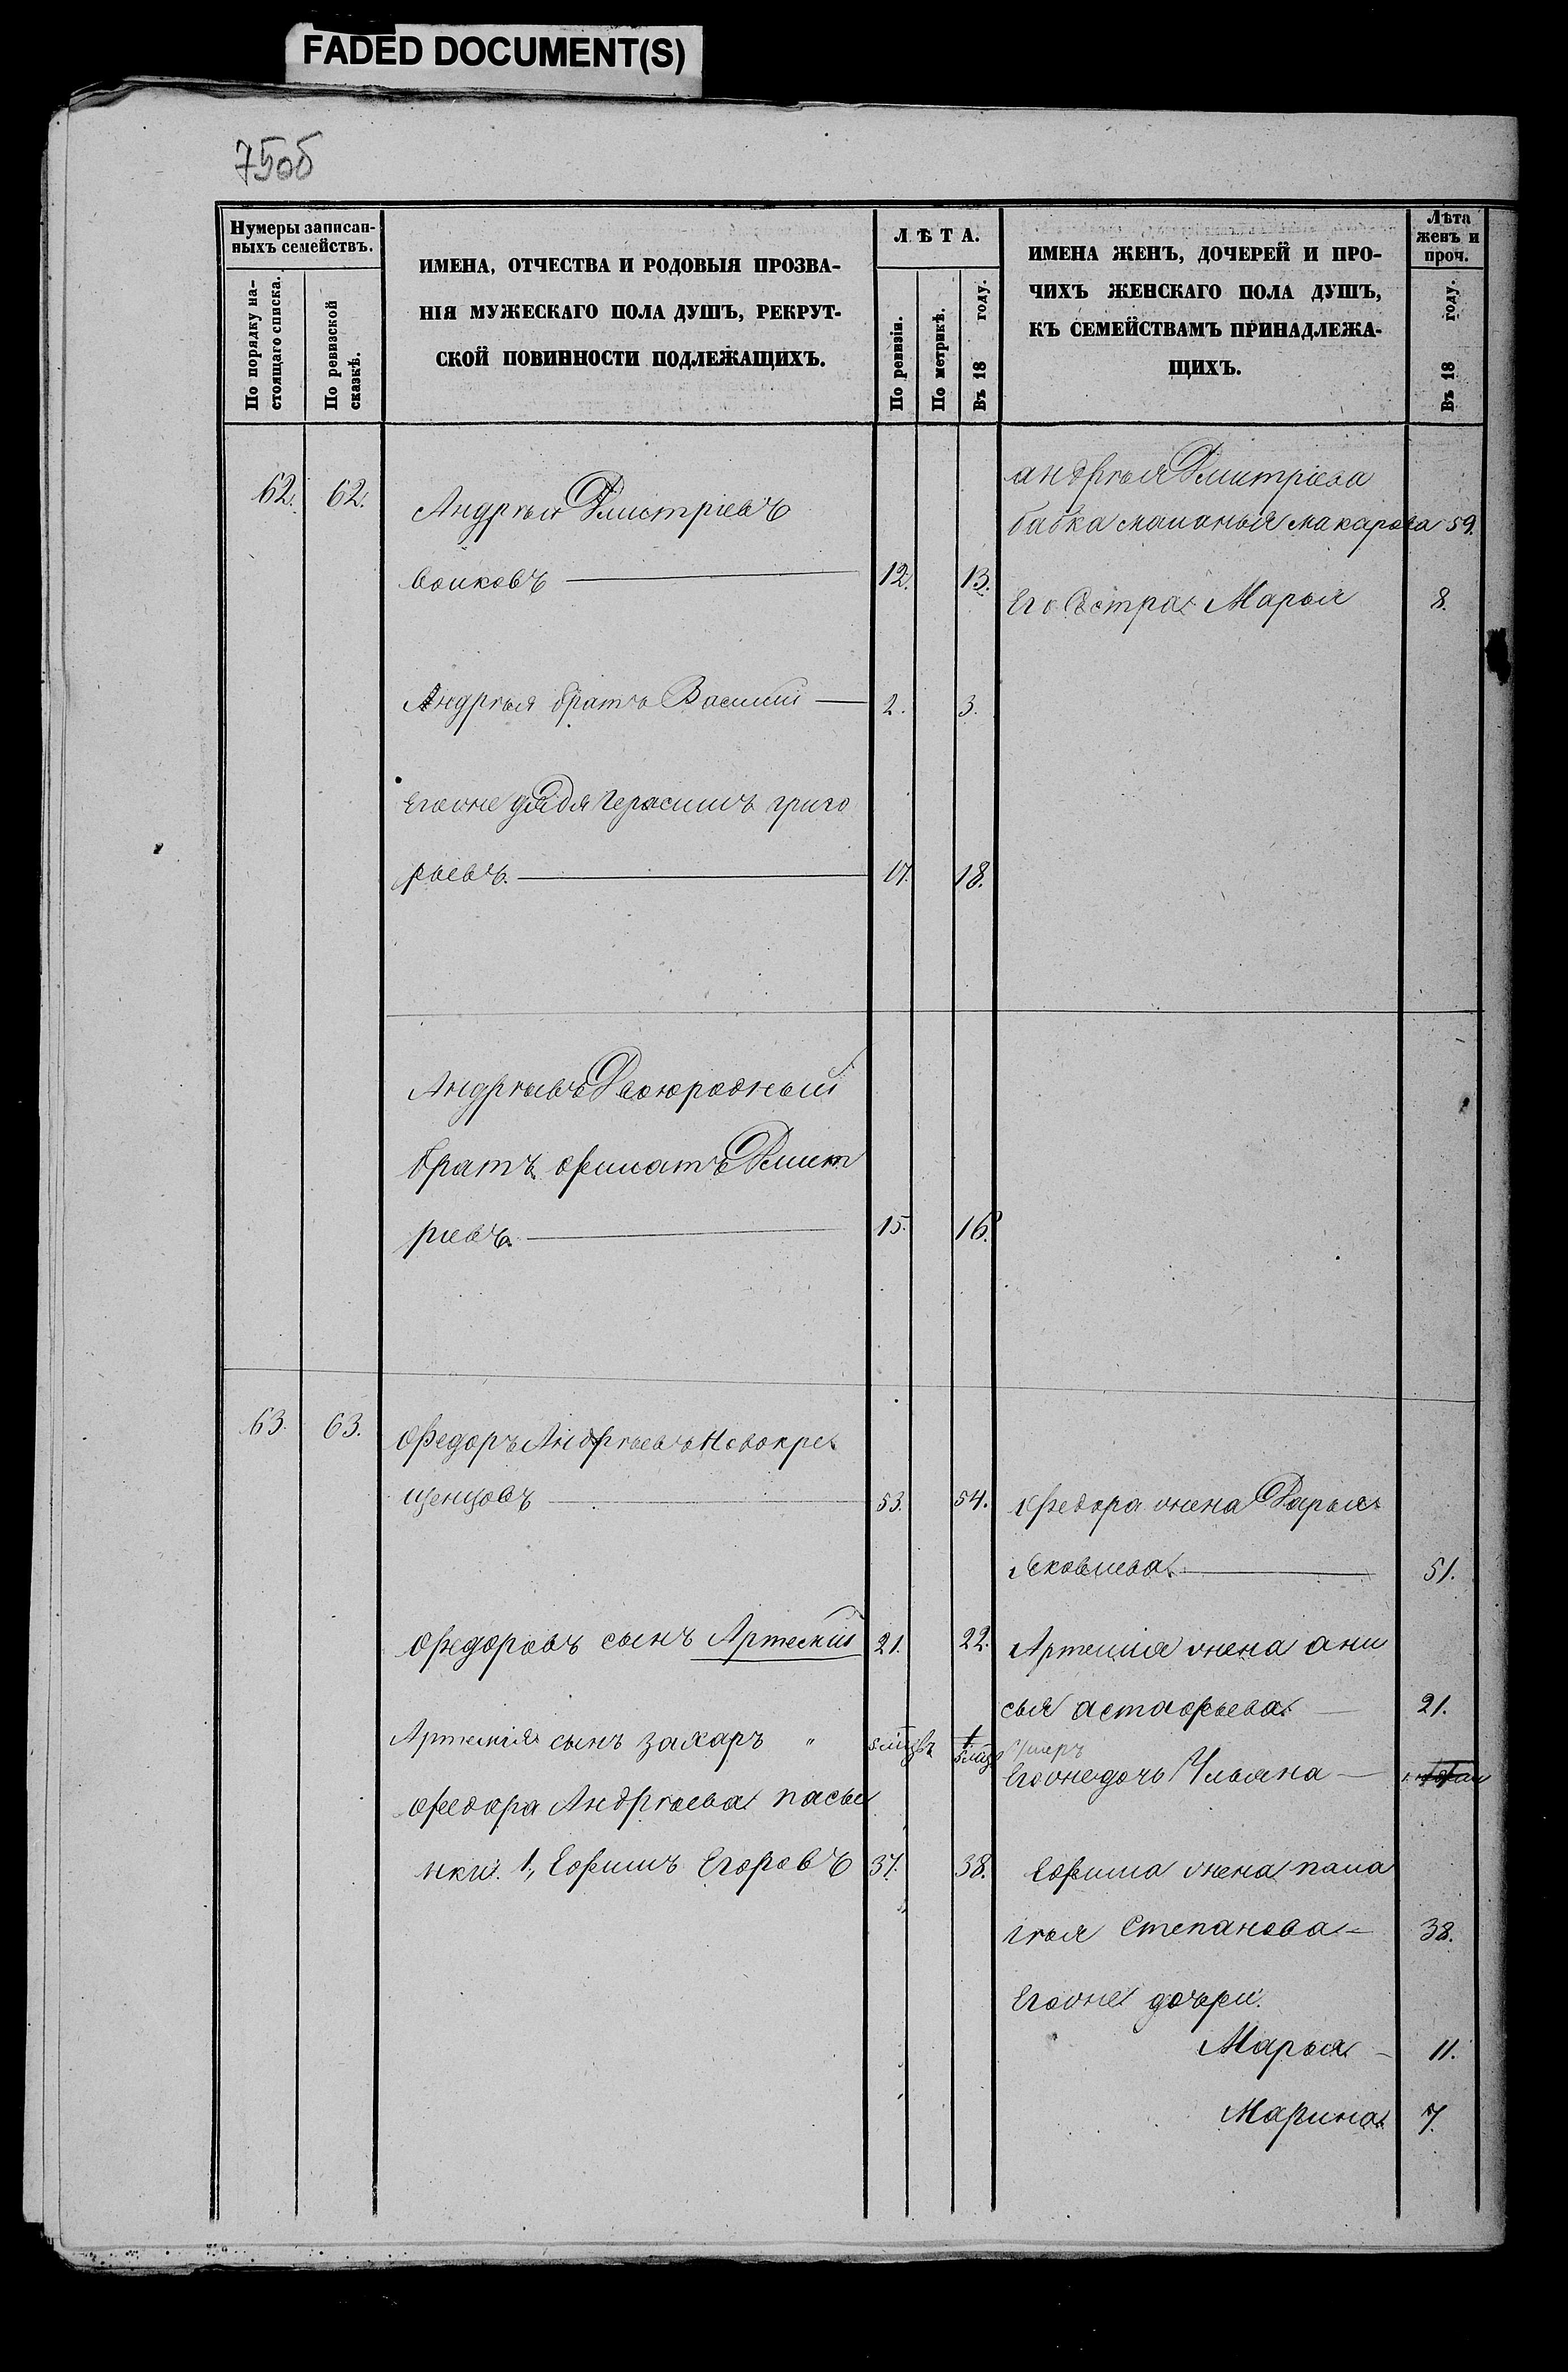 FADED DOCUMENT(S)
75об
Нумеры записан-
ныхъ семействъ.
По порядку на-
стоящаго списка.
По ревизской
сказкѣ.
ИМЕНА, ОТЧЕСТВА И РОДОВЫЯ ПРОЗВА-
НІЯ МУЖЕСКАГО ПОЛА ДУШЪ, РЕКРУТ-
СКОЙ ПОВИННОСТИ ПОДЛЕЖАЩИХЪ.
ЛѢТА.
По ревизіи.
По метрикѣ.
Въ 18 году.
ИМЕНА ЖЕНЪ, ДОЧЕРЕЙ И ПРО-
ЧИХЪ ЖЕНСКАГО ПОЛА ДУШЪ,
КЪ СЕМЕЙСТВАМЪ ПРИНАДЛЕЖА-
ЩИХЪ.
Лѣта
женъ и
проч.
Въ 18 году.
62. 62. Андрѣй Дмитріевъ
воиковъ 12. 13.
андрѣя Дмитріева
бабка маланья макарова 59.
Его Сестра Марья 8.
Андрѣя братъ Василій 2. 3.
Егоже дядя Герасимъ григо
рьевъ. 17. 18.
Андрѣевъ Двоюродный
братъ филатъ Дмит
ріевъ. 15. 16.
63. 63. Федоръ Андрѣевъ Новокре
щенцовъ 53. 54.
Федора жена Дарья
Яковлева 51.
Федоровъ сынъ Артемій 21. 22.
Артемія жена ани
сья астафьева 21.
Артемія сынъ захаръ "
умеръ
Егоже дочь Ульяна
Федора Андрѣева пасы
нки. 1, Ефимъ Егоровъ 37. 38.
Ефима жена пела
гѣя Степанова 38.
Егоже дочери.
Марья 11.
Марина 7.